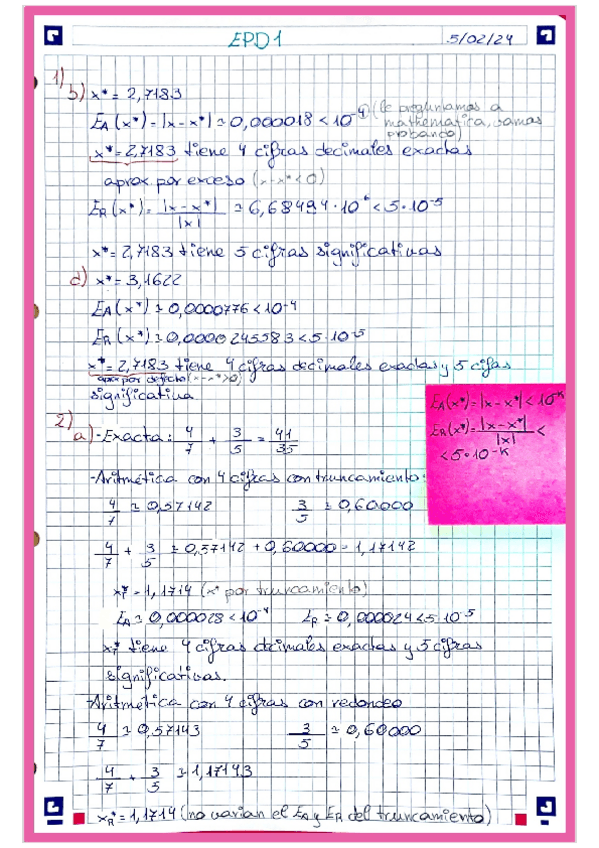 EPD1
5/02/24
1)
b) x* = 2,7183
EA(x*) = |x - x*| ≃ 0,000018 < 10⁻⁴ (le preguntamos a
mathematica, vamos
probando)
x* = 2,7183 tiene 4 cifras decimales exactas
aprox. por exceso (x-x*<0)
ER(x*) = |x - x*| / |x| ≃ 6,68494·10⁻⁶ < 5·10⁻⁵
x* = 2,7183 tiene 5 cifras significativas
d) x* = 3,1622
EA(x*) ≃ 0,0000776 < 10⁻⁴
ER(x*) ≃ 0,0000245583 < 5·10⁻⁵
x* = 2,7183 tiene 4 cifras decimales exactas y 5 cifas
aprox por defecto (x-x*>0)
significativa
EA(x*) = |x-x*| < 10⁻ᴷ
ER(x*) = |x-x*| / |x| <
< 5·10⁻ᴷ
2)
a) -Exacta: 4/7 + 3/5 = 41/35
-Aritmética con 4 cifras con truncamiento:
4/7 ≃ 0,57142 3/5 ≃ 0,60000
4/7 + 3/5 ≃ 0,57142 + 0,60000 = 1,17142
xT* = 1,1714 (x* por truncamiento)
EA ≃ 0,000028 < 10⁻⁴ ER ≃ 0,000024 < 5·10⁻⁵
xT* tiene 4 cifras decimales exactas y 5 cifras
significativas.
-Aritmética con 4 cifras con redondeo
4/7 ≃ 0,57143 3/5 ≃ 0,60000
4/7 + 3/5 ≃ 1,17143
xR* = 1,1714 (no varían el EA y ER del truncamiento)